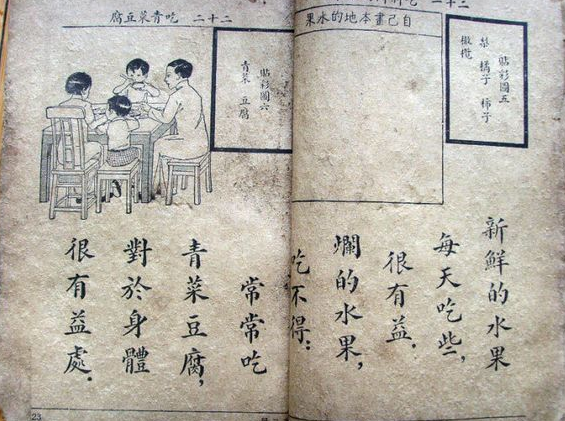 貼彩圖五
橘子 柿子
橄欖
自己畫本地的水果
新鮮的水果
每天吃些,
很有益.
爛的水果,
吃不得:
二十二 吃青菜豆腐
貼彩圖六
青菜 豆腐
常常吃
青菜豆腐,
對於身體
很有益處.
23